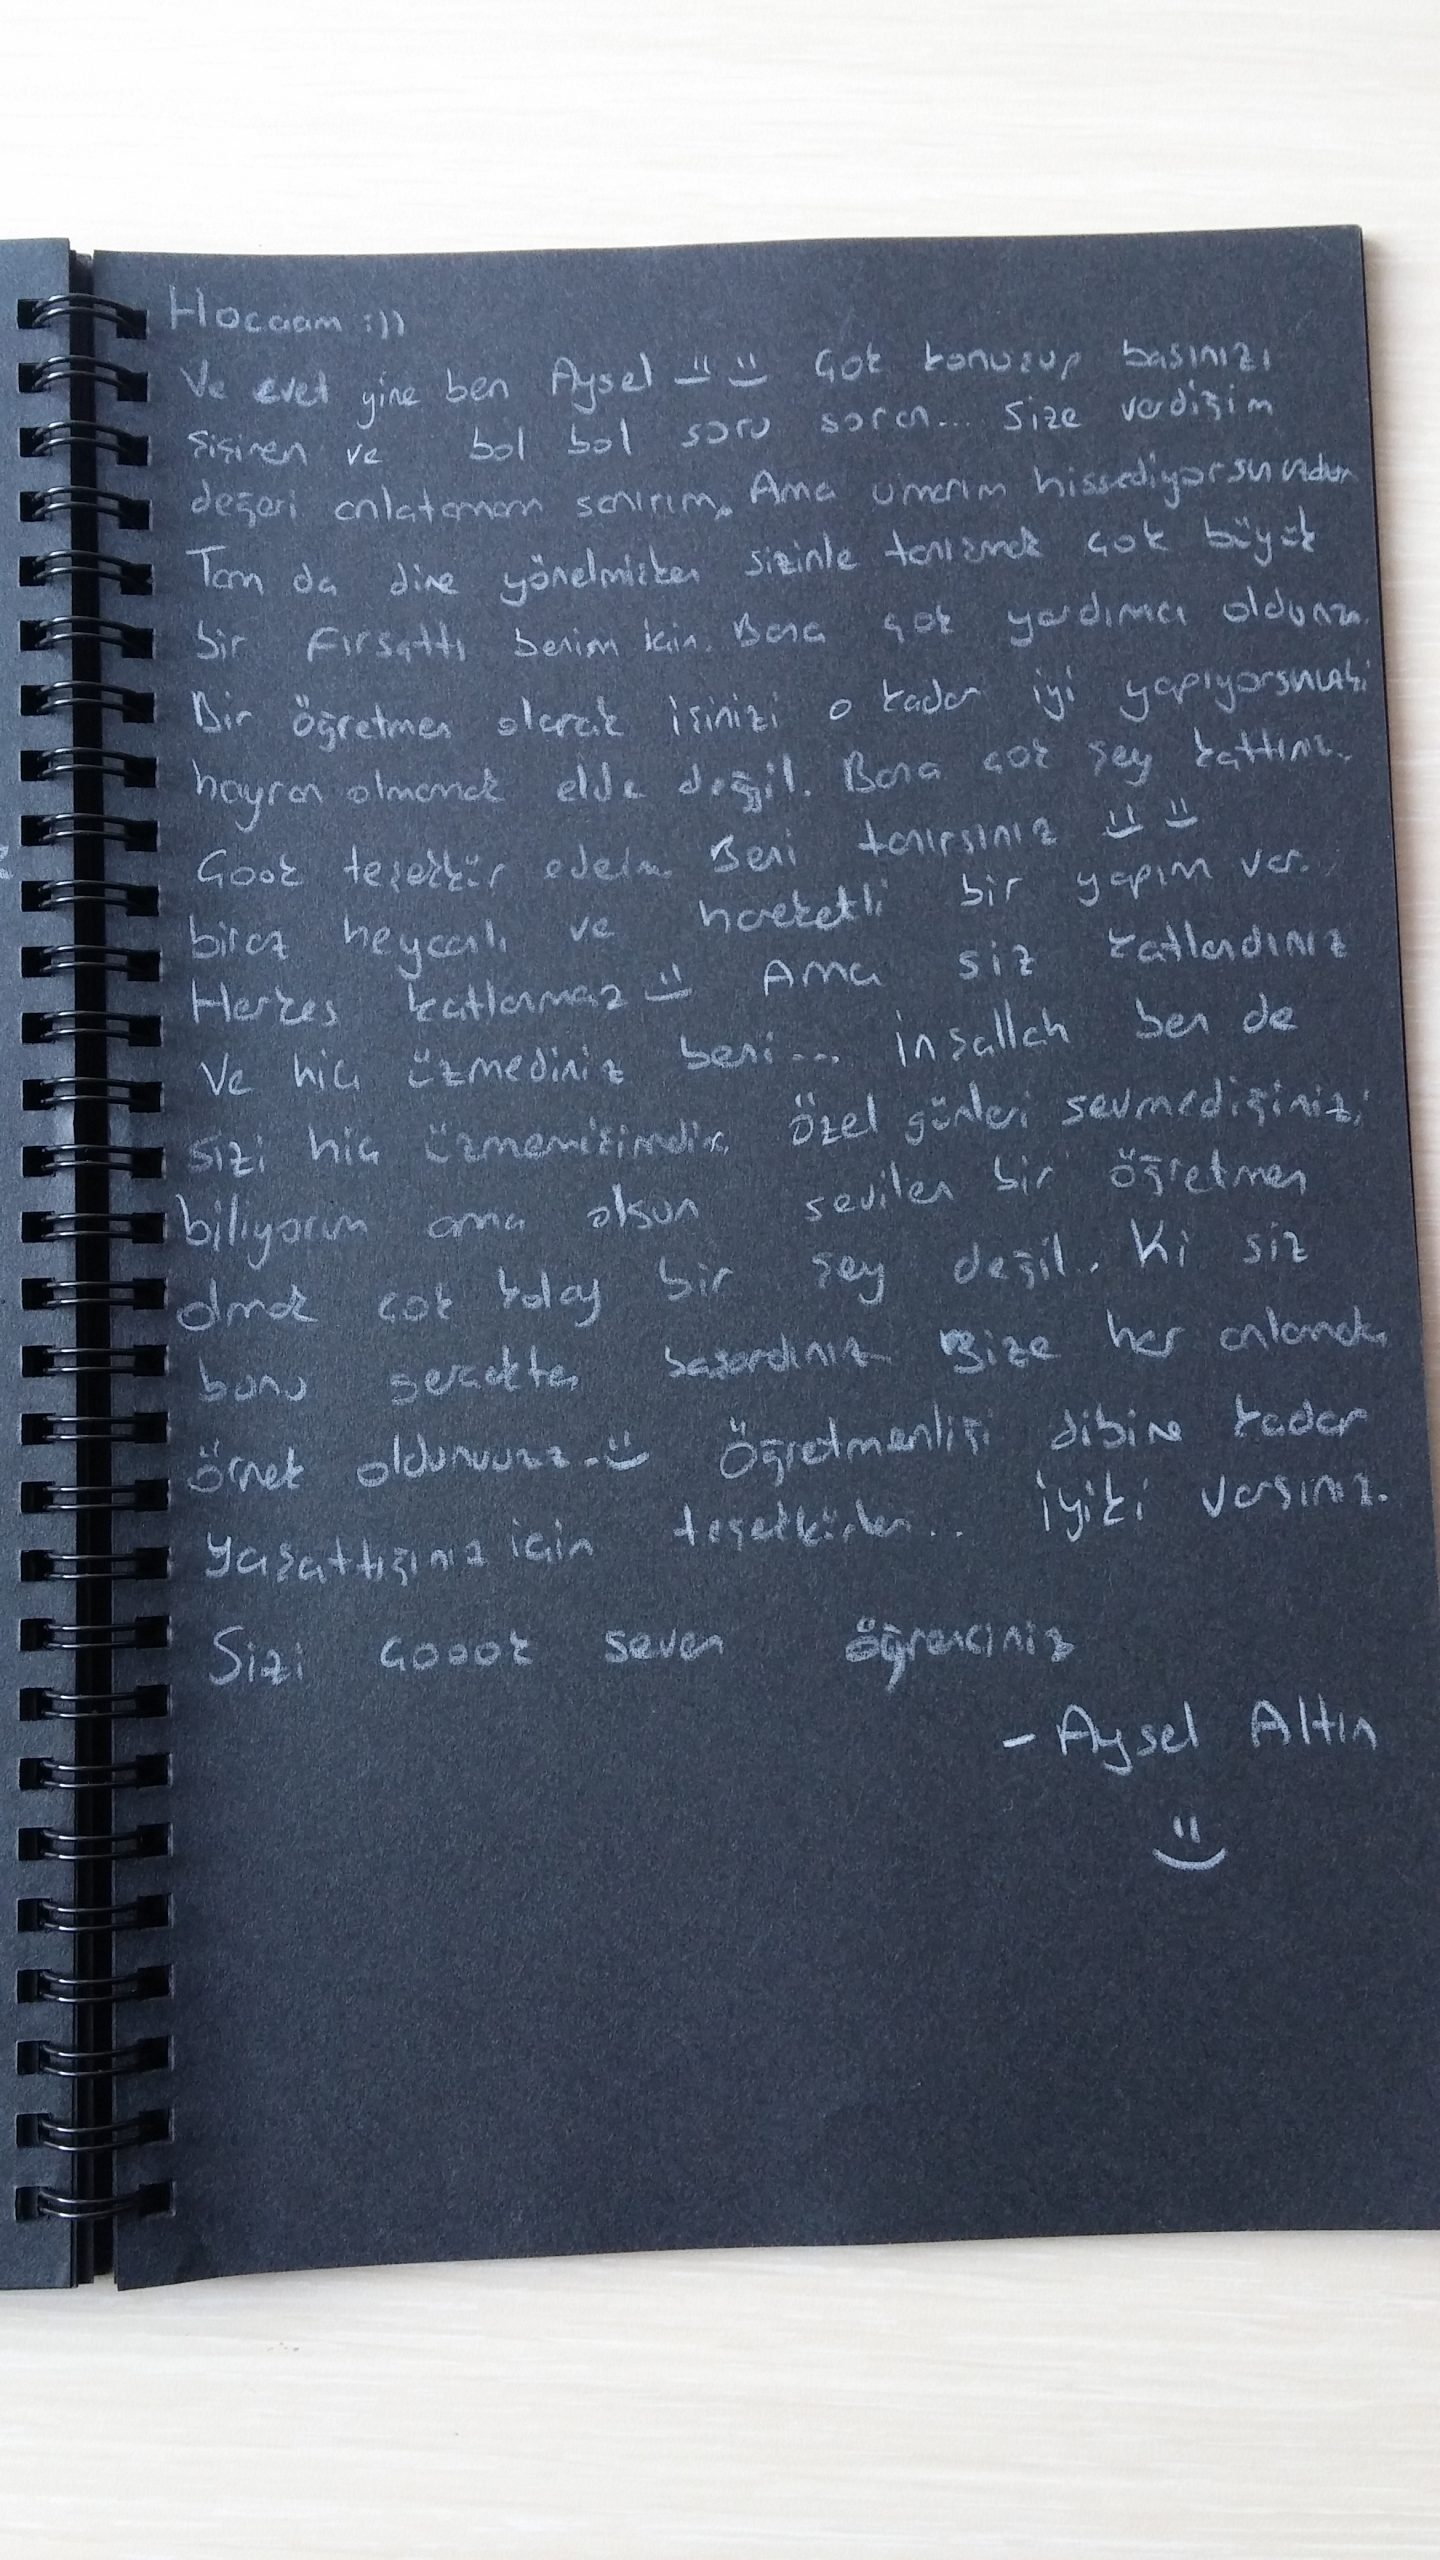 Hocaam :))
Ve evet yine ben Aysel Çok konuşup başınızı
şişiren ve bol bol soru soran... Size verdiğim
değeri anlatamam sanırım. Ama umarım hissediyorsunuzdur
Tam da dine yönelmişken sizinle tanışmak çok büyük
bir fırsattı benim için. Bana çok yardımcı oldunuz.
Bir öğretmen olarak işinizi o kadar iyi yapıyorsunuzki
hayran olmamak elde değil. Bana çok şey kattınız.
Çook teşekkür ederim Beni tanırsınız
biraz heycanlı ve hareketli bir yapım var.
Herkes katlanmaz Ama siz katlandınız
Ve hiç üzmediniz beni... inşallah ben de
sizi hiç üzmemişimdir. Özel günleri sevmediğinizi
biliyorum ama olsun sevilen bir öğretmen
olmak çok kolay bir şey değil. Ki siz
bunu gerçekten başardınız Bize her anlamda
örnek oldunuz. Öğretmenliği dibine kadar
yaşattığınız için teşekkürler... iyiki varsınız.
Sizi çoook seven öğrenciniz
- Aysel Altın